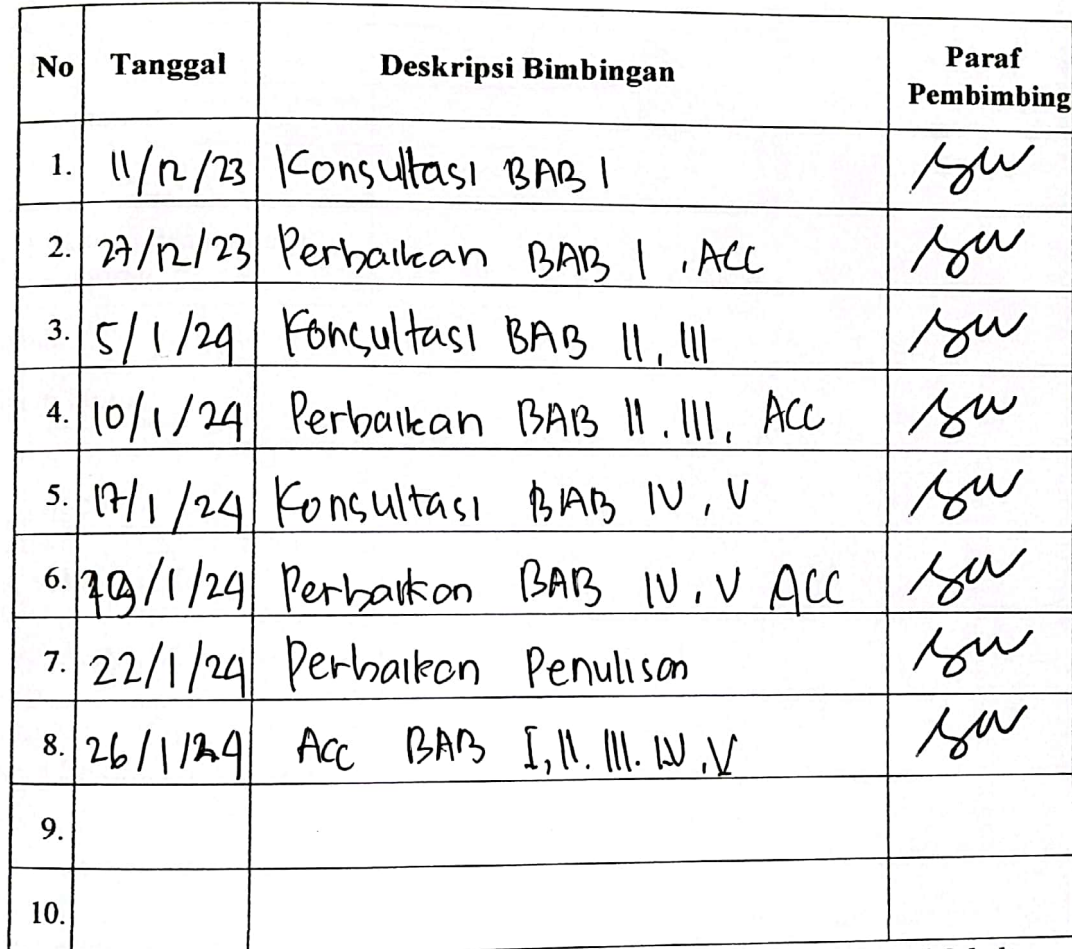 No Tanggal Deskripsi Bimbingan Paraf Pembimbing
1. 11/12/23 Konsultasi BAB I
2. 27/12/23 Perbaikan BAB I, ACC
3. 5/1/24 Konsultasi BAB II, III
4. 10/1/24 Perbaikan BAB II. III, ACC
5. 17/1/24 Konsultasi BAB IV, V
6. 19/1/24 Perbaikan BAB IV, V ACC
7. 22/1/24 Perbaikan Penulisan
8. 26/1/24 Acc BAB I, II. III. IV, V
9.
10.